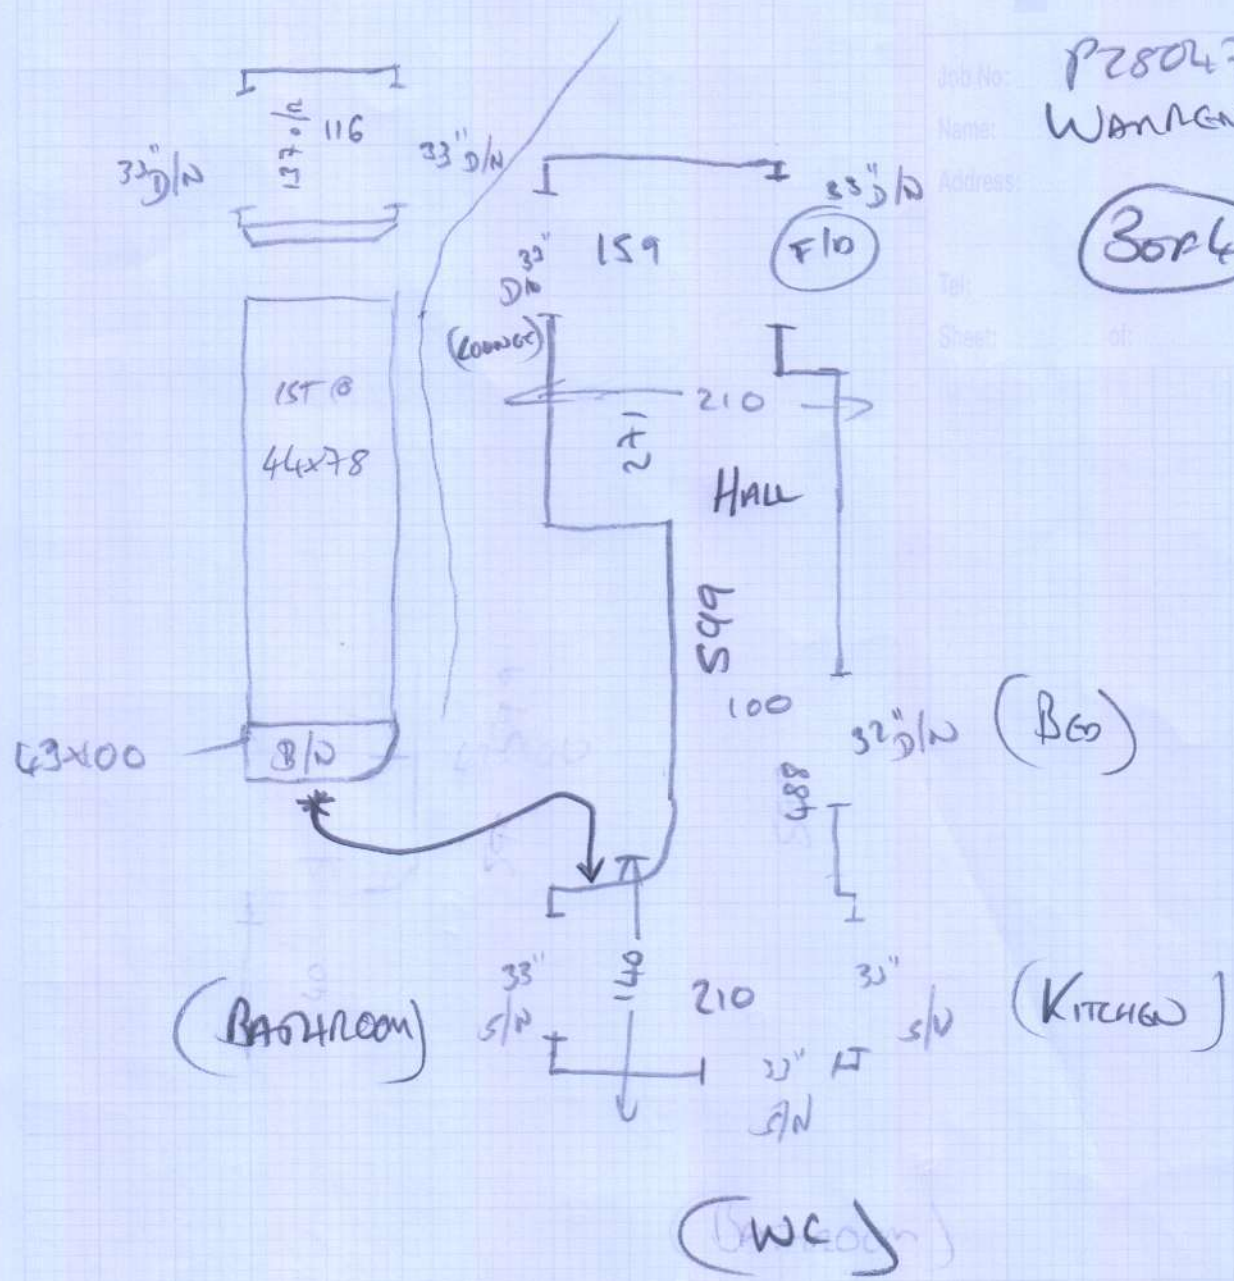 Job No: P28047
Name: WARREN
Address:
3 OF 4
Tel:
Sheet: of:
137 o/n
116
33" D/N
33" D/N
33" D/N
159
F/D
33"
(LOUNGE)
15T @
44x78
210
271
HALL
599
100
32" D/N
(BED)
43x00
B/N
488
33"
S/N
140
210
33"
S/N
(BATHROOM)
(KITCHEN)
33"
S/N
(WC)